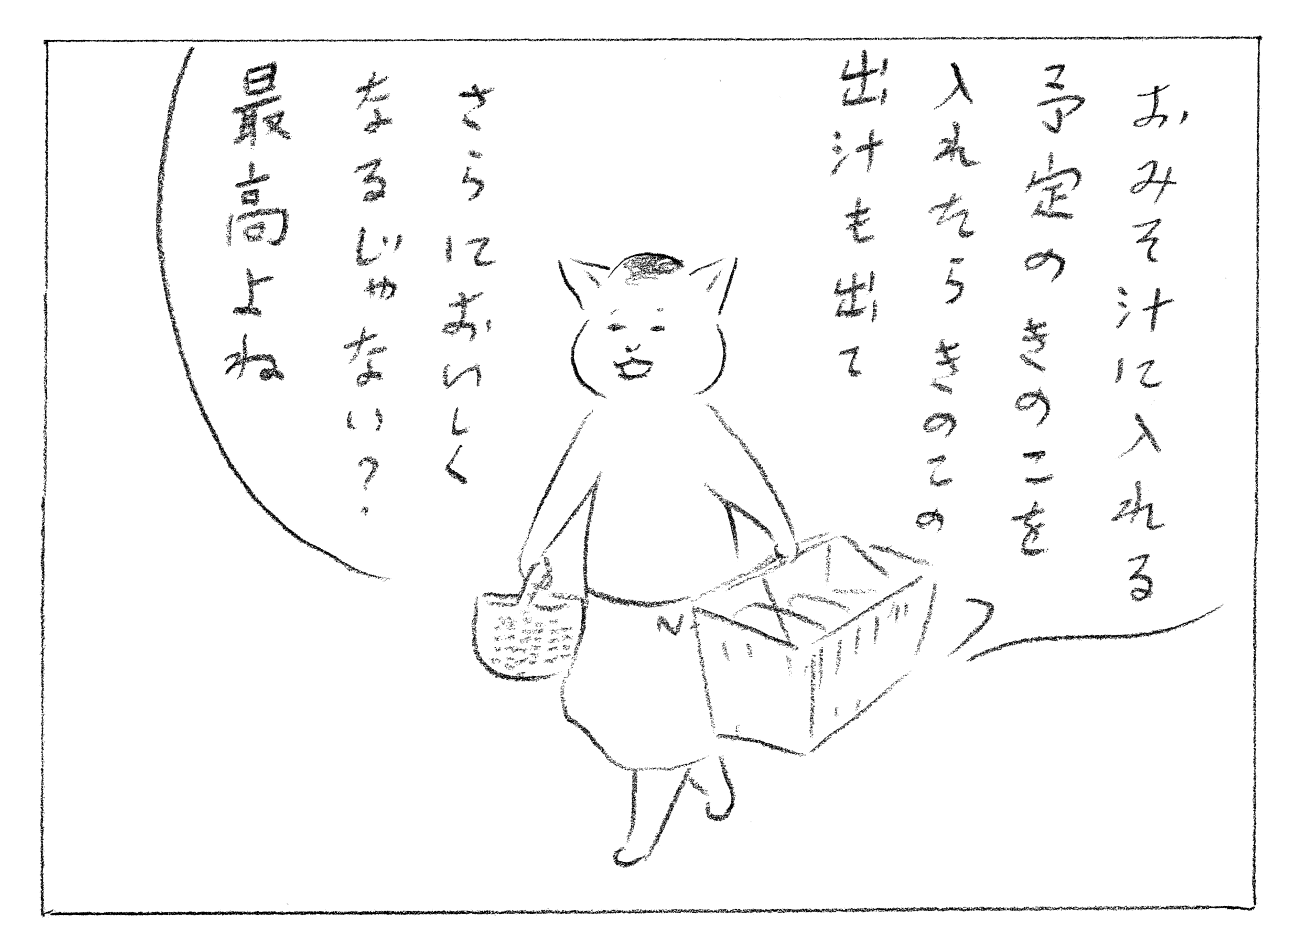 おみそ汁に入れる
予定のきのこを
入れたらきのこの
出汁も出て
さらにおいしく
なるじゃない？
最高よね